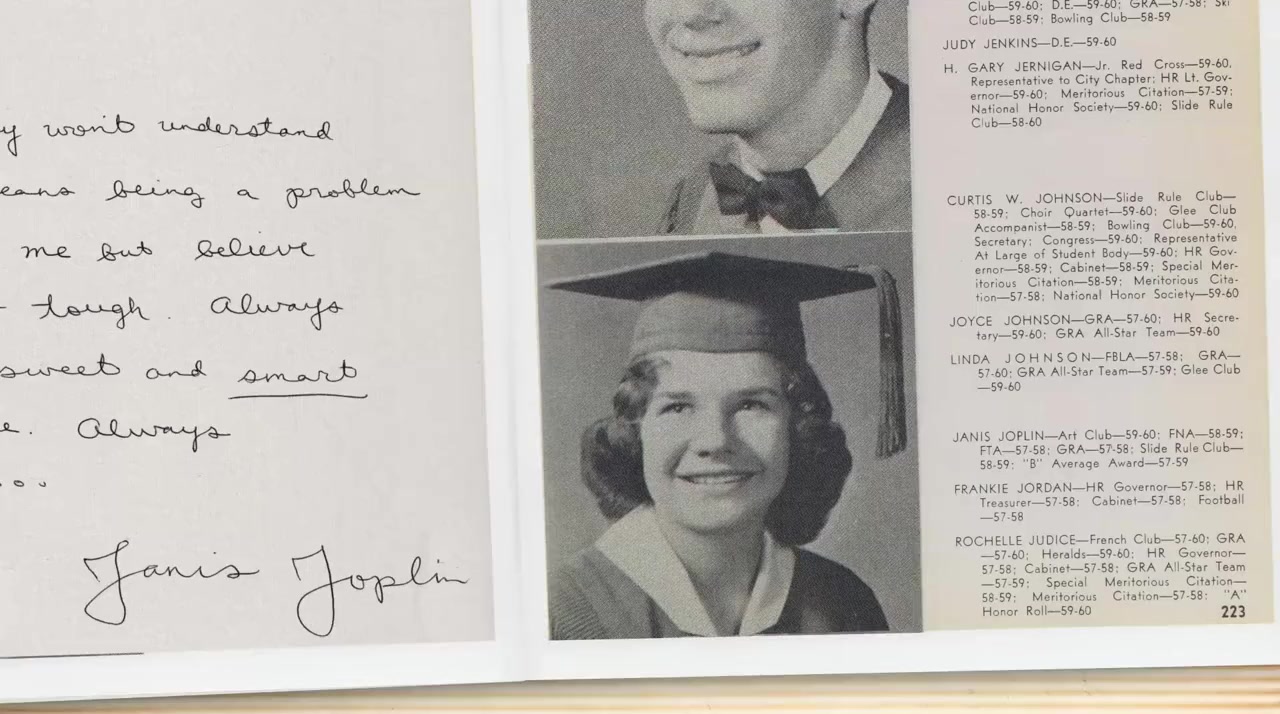 won't understand
being a problem
me but believe
tough. Always
sweet and smart
Always
...
Janis Joplin
Club—59-60; D.E.—59-60; GRA—57-58; Ski
Club—58-59; Bowling Club—58-59
JUDY JENKINS—D.E.—59-60
H. GARY JERNIGAN—Jr. Red Cross—59-60,
Representative to City Chapter; HR Lt. Gov-
ernor—59-60; Meritorious Citation—57-59;
National Honor Society—59-60; Slide Rule
Club—58-60
CURTIS W. JOHNSON—Slide Rule Club—
58-59; Choir Quartet—59-60; Glee Club
Accompanist—58-59; Bowling Club—59-60,
Secretary; Congress—59-60; Representative
At Large of Student Body—59-60; HR Gov-
ernor—58-59; Cabinet—58-59; Special Mer-
itorious Citation—58-59; Meritorious Cita-
tion—57-58; National Honor Society—59-60
JOYCE JOHNSON—GRA—57-60; HR Secre-
tary—59-60; GRA All-Star Team—59-60
LINDA JOHNSON—FBLA—57-58; GRA—
57-60; GRA All-Star Team—57-59; Glee Club
—59-60
JANIS JOPLIN—Art Club—59-60; FNA—58-59;
FTA—57-58; GRA—57-58; Slide Rule Club—
58-59; "B" Average Award—57-59
FRANKIE JORDAN—HR Governor—57-58; HR
Treasurer—57-58; Cabinet—57-58; Football
—57-58
ROCHELLE JUDICE—French Club—57-60; GRA
—57-60; Heralds—59-60; HR Governor—
57-58; Cabinet—57-58; GRA All-Star Team
—57-59; Special Meritorious Citation—
58-59; Meritorious Citation—57-58; "A"
Honor Roll—59-60
223